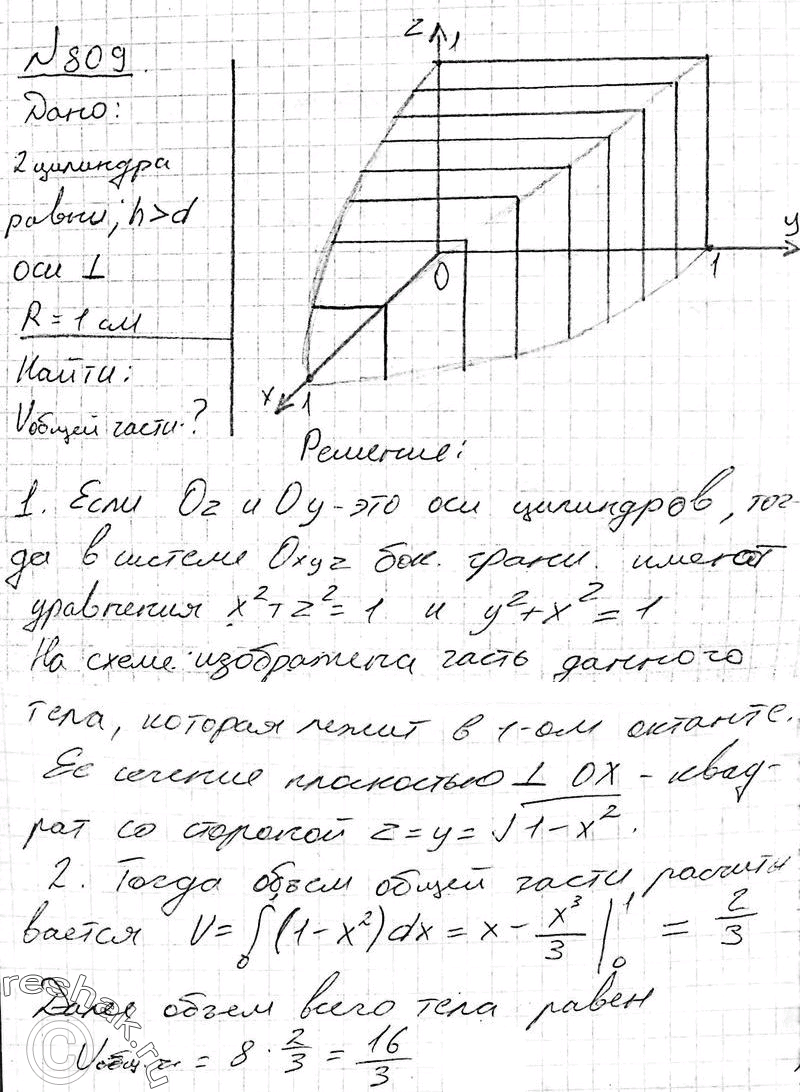 N809.
Дано:
2 цилиндра
равны; h>d
оси ⊥
R = 1 см
Найти:
Vобщей части-?
z 1
y
0
1
x 1
Решение:
1. Если Oz и Oy - это оси цилиндров, тог-
да в системе Oxyz бок. грани. имеют
уравнения x²+z²=1 и y²+x²=1
На схеме изображена часть данного
тела, которая лежит в 1-ом октанте.
Ее сечение плоскостью ⊥ OX - квад-
рат со стороной z=y=√1-x².
2. Тогда объем общей части расчиты
вается V=∫₀¹(1-x²)dx = x - x³/3 |₀¹ = 2/3
Далее объем всего тела равен
Vобщ.ч = 8·2/3 = 16/3
©reshak.ru